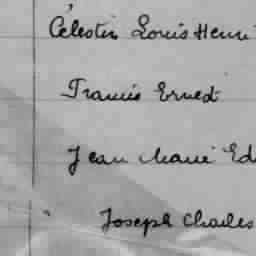 Célestin Louis Henri
Francis Ernest
Jean Marie Ed
Joseph Charles